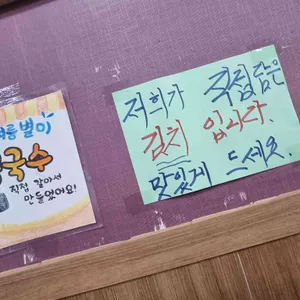 국수
직접 갈아서
만들었어요!
저희가 직접 담은
김치 입니다.
맛있게 드세요.